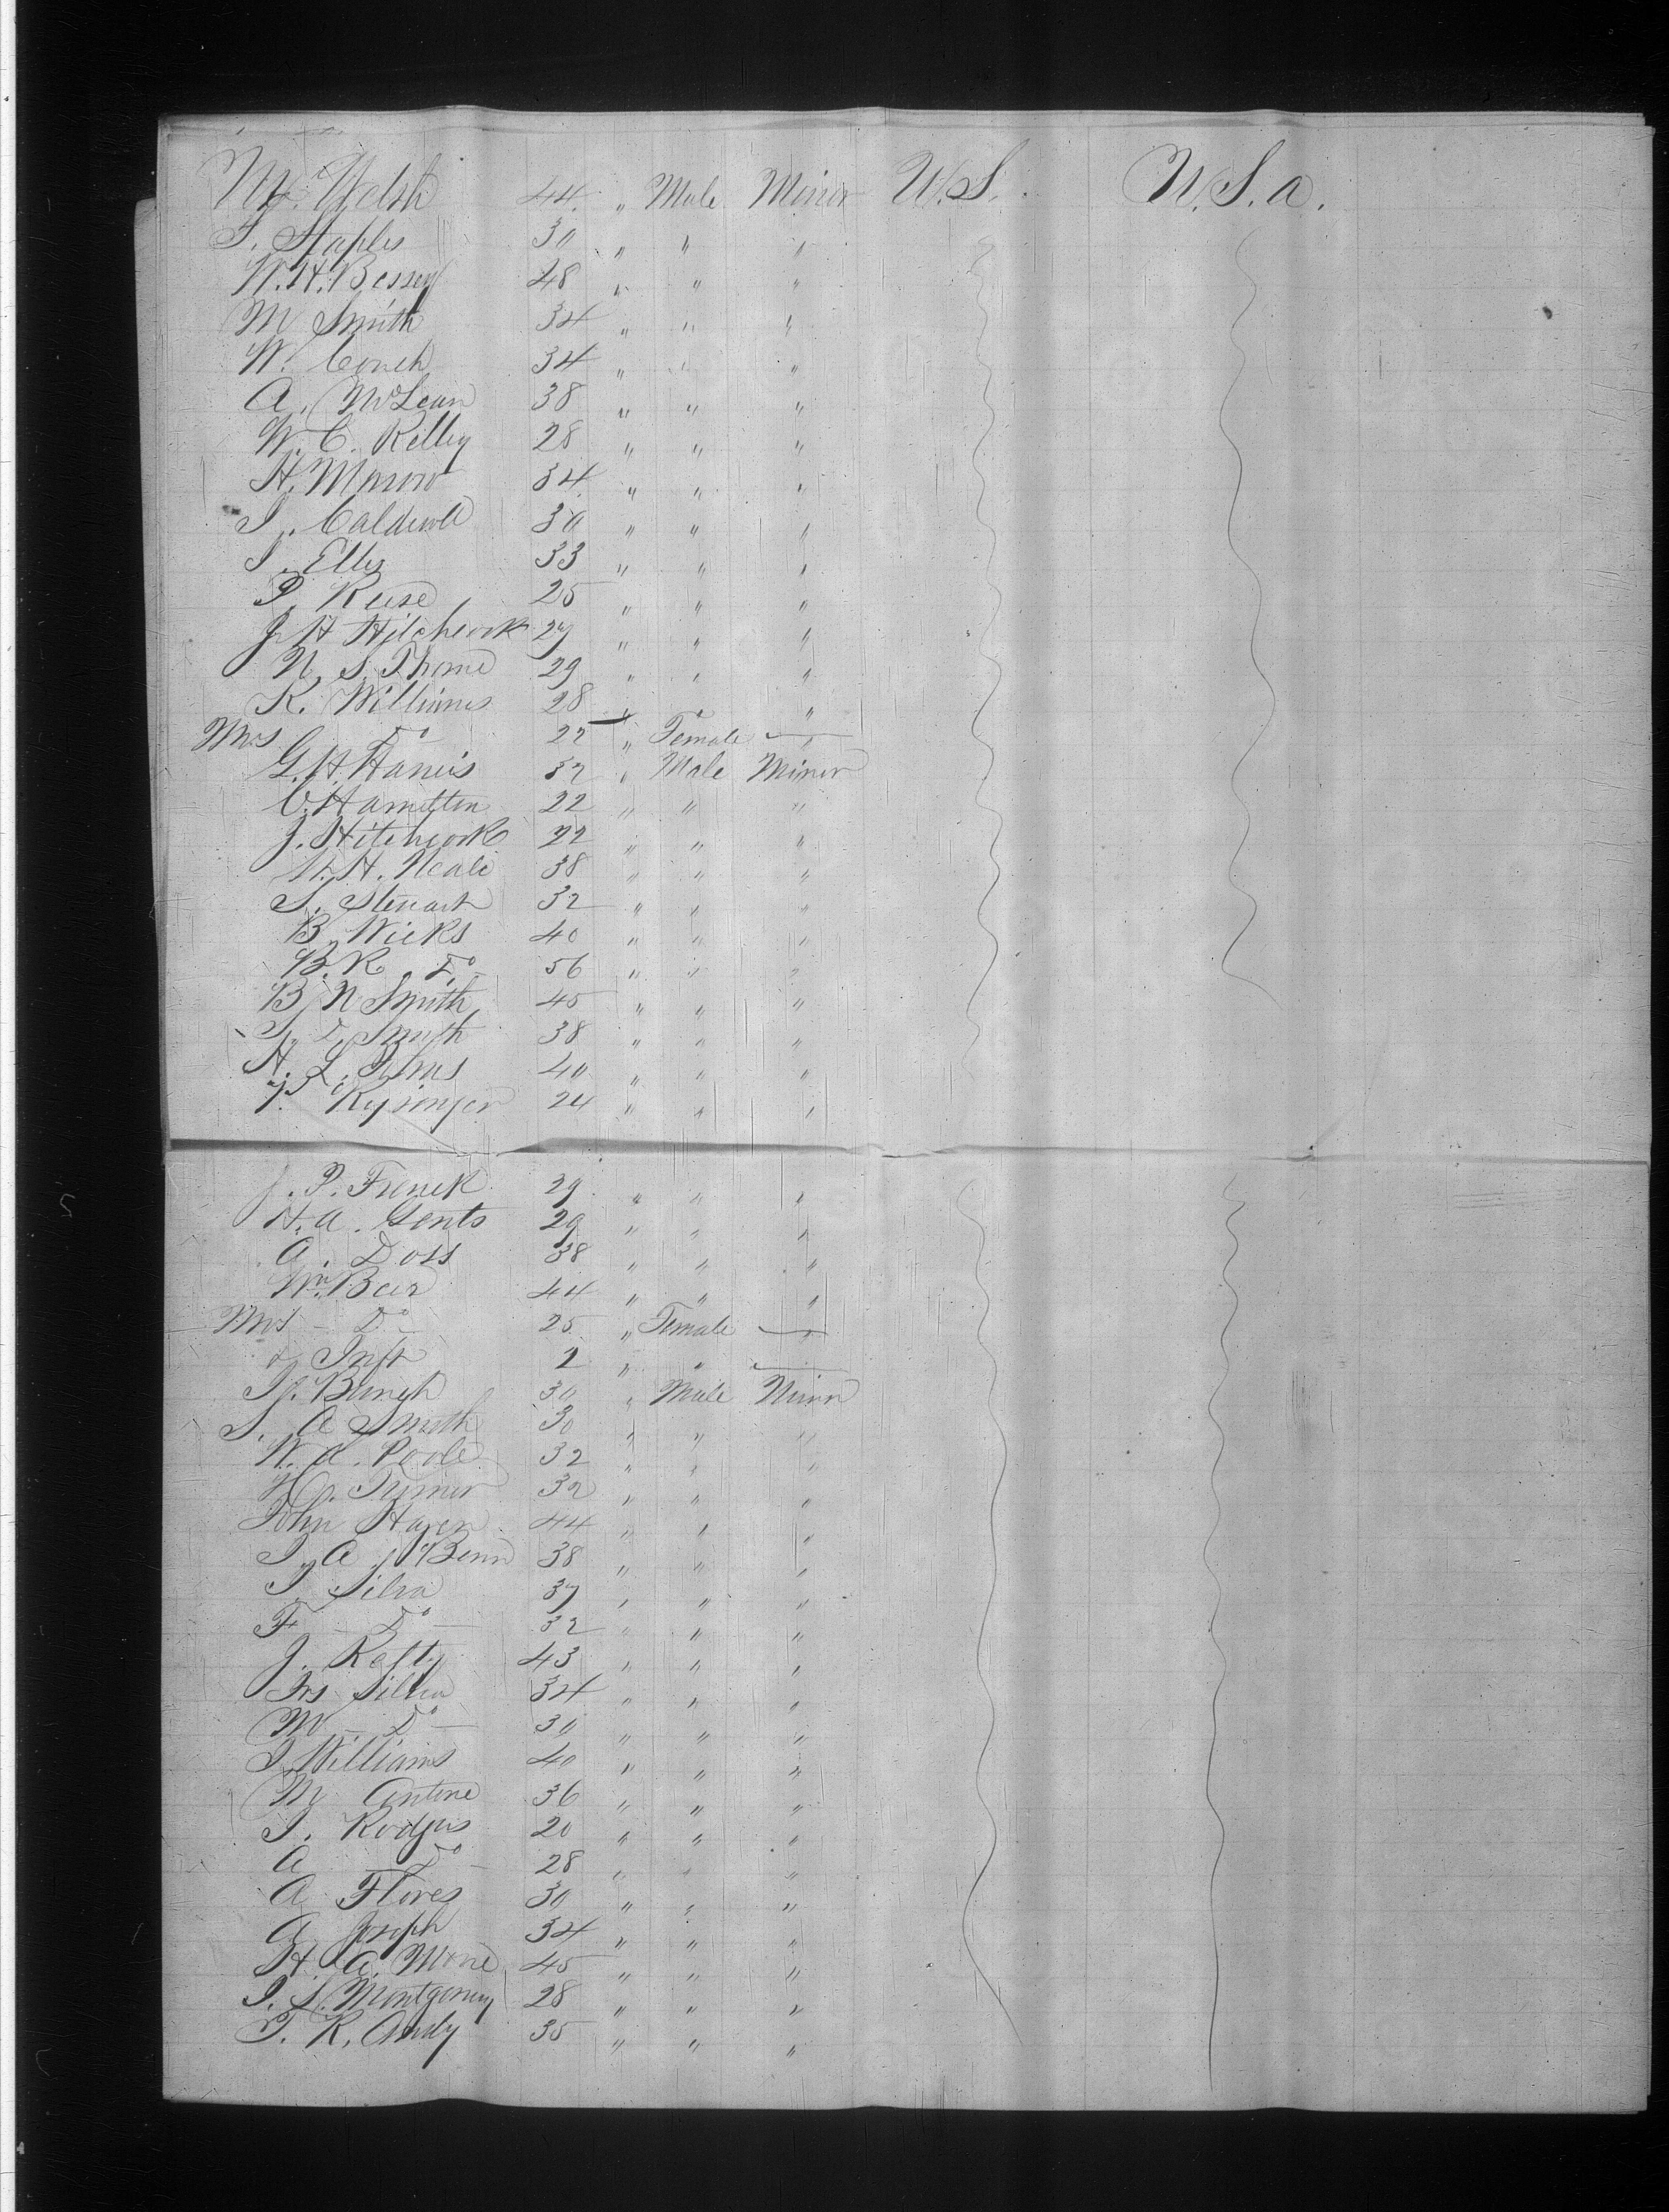 M. Welsh 44 " Male Minor U.S. U.S.a.
T. Staples 30 " " "
W. H. Bessey 48 " " "
M Smith 34 " " "
W. Couch 34 " " "
A. McLean 38 " " "
W. C. Kelley 28 " " "
H. Morrow 34 " " "
J. Caldwell 30 " " "
J. Elley 33 " " "
P. Reese 25 " " "
J H Hitchcock 27 " " "
N. S. Thorne 29 " " "
K. Williams 28 " " "
Mrs Do 22 " Female
G. H. Harris 32 " Male Minor
C. Hamilton 22 " " "
J. Hitchcock 22 " " "
W. H. Neale 38 " " "
S. Stewart 32 " " "
B. Wicks 40 " " "
B. R. Do 56 " " "
B N Smith 45 " " "
S. D. Smith 38 " " "
H. L. Sims 40 " " "
Rysinger 24 " " "
J. P. French 29 " " "
H. A. Gents 29 " " "
A. Doss 38 " " "
Wm. Beer 44 " " "
Mrs - Do 25 " Female
Inft 2 " "
Bunch 30 " Male Minr
S. A Smith 30 " " "
W. A. Poole 32 " " "
Turner 32 " " "
John Haven 44 " " "
38 " " "
J. Silva 37 " " "
F - Do - 32 " " "
J. Rafty 43 " " "
Jrs Silva 34 " " "
M - Do - 30 " " "
J. Williams 40 " " "
M Antone 36 " " "
J. Rodgers 20 " " "
A Do - 28 " " "
A Flores 30 " " "
A Joseph 34 " " "
H. A. More 45 " " "
J. S. Montgomery 28 " " "
T. R. Andy 35 " " "